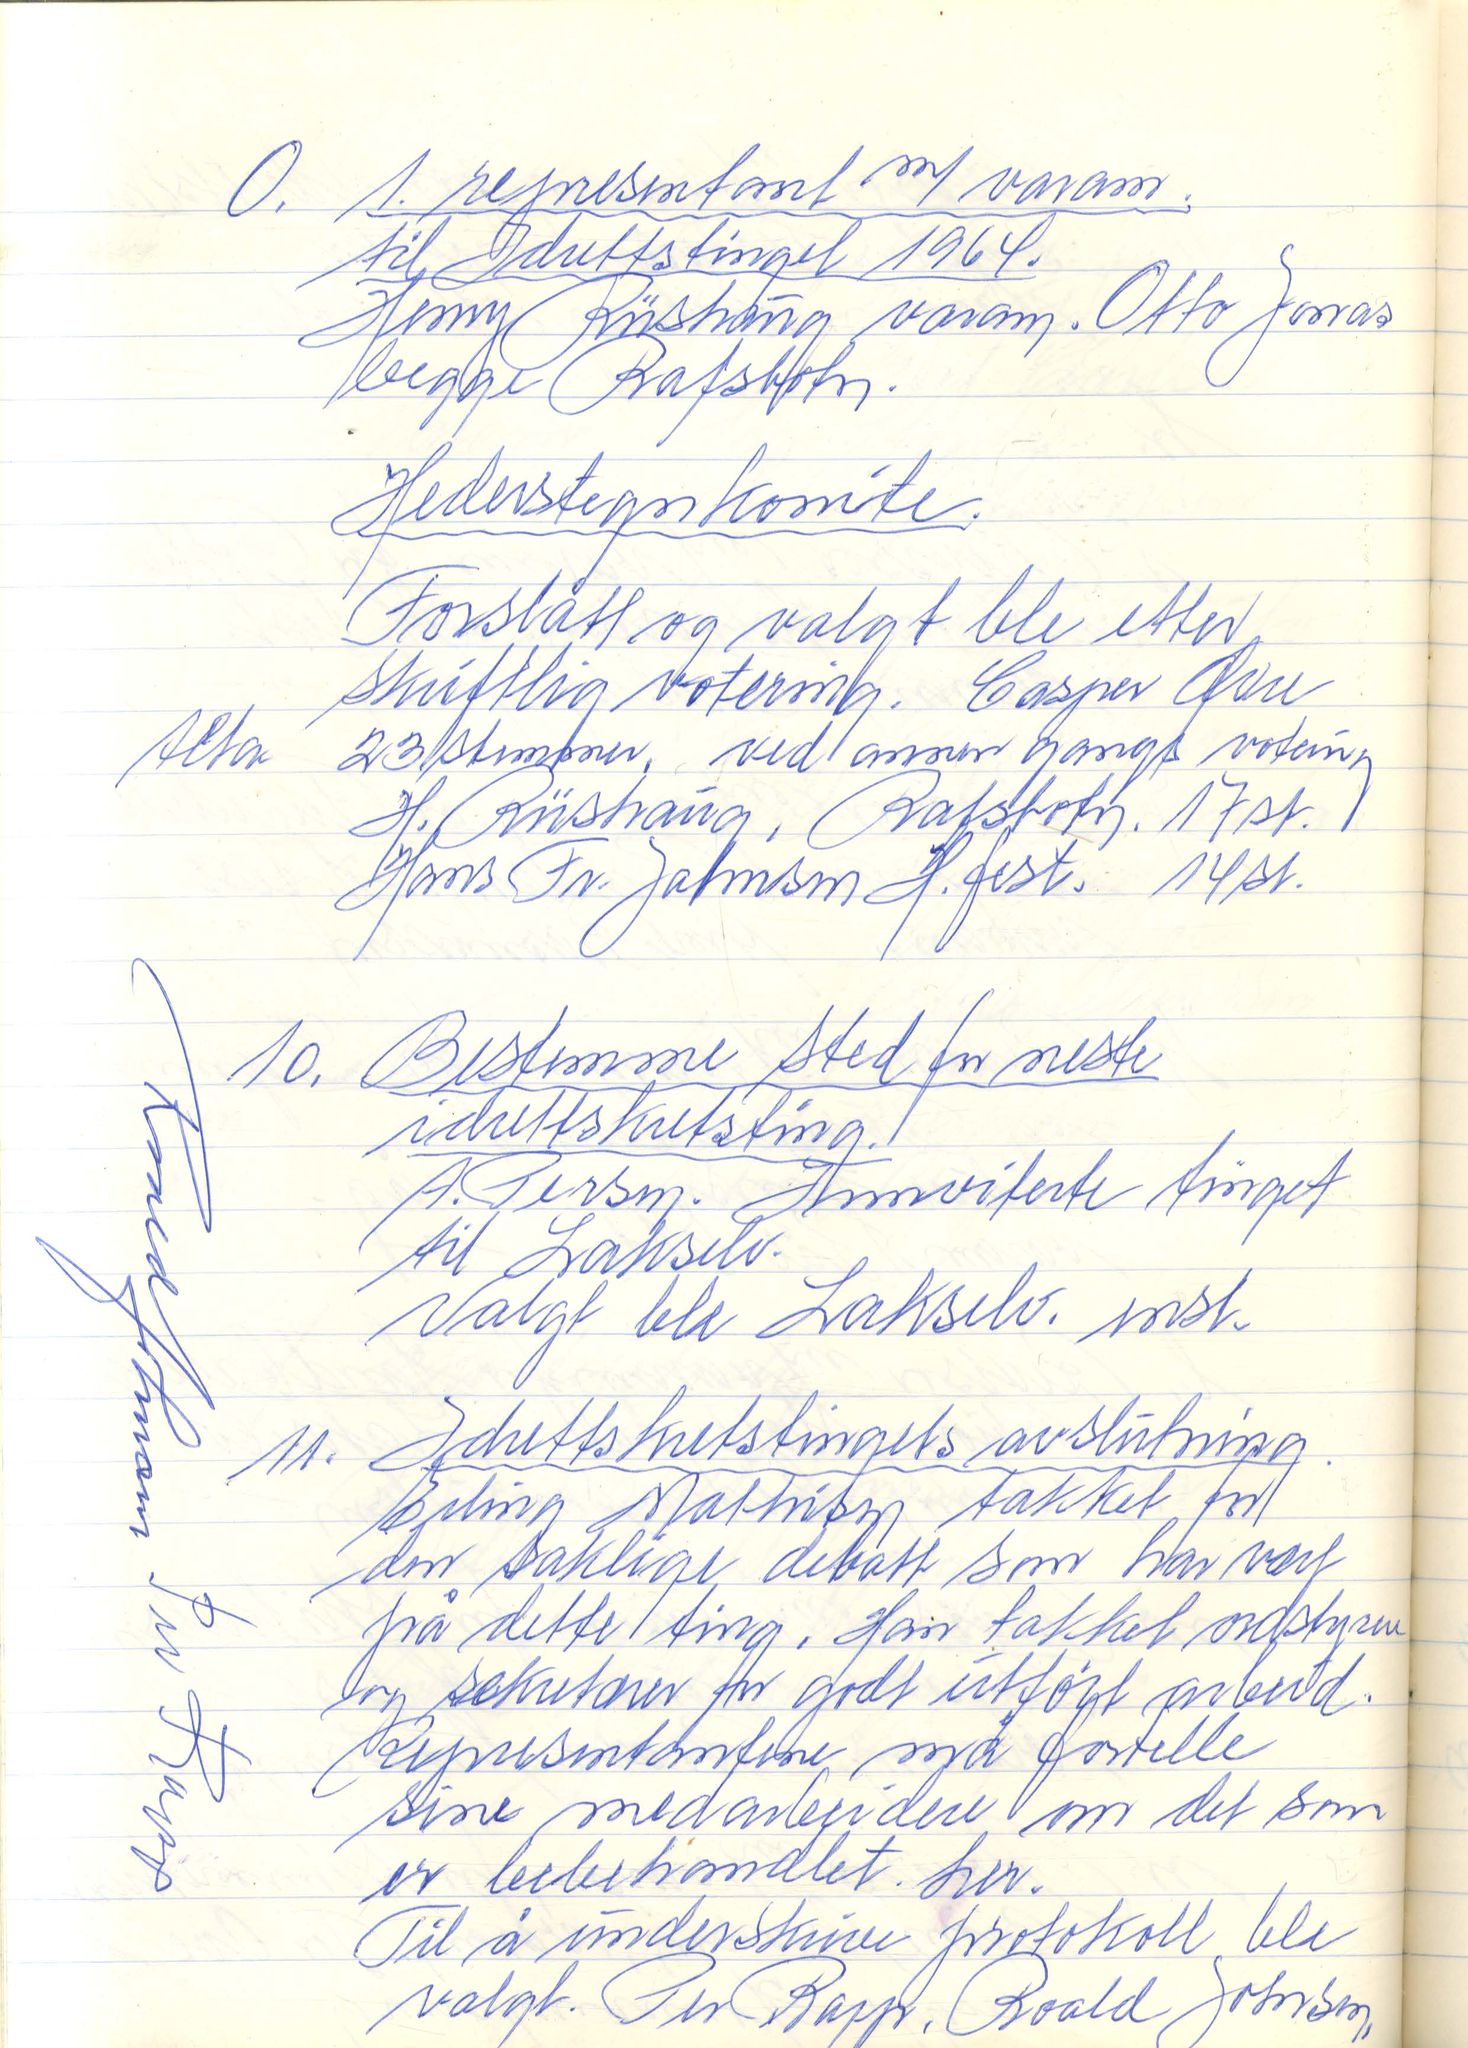 O. 1. representant m/ varam.
til Idrettstinget 1964.
Henry Riishaug varam. Otto Jonras
begge Rafsbotn.
Hederstegnkomite.
Forslått og valgt ble etter
skriftlig votering. Casper
Alta 23 stemmer, ved annen gangs votering
H. Riishaug, Rafsbotn. 17 st.
Hans Fr. Johnsen H.fest. 14 st.
10. Bestemme sted for neste
idrettskretsting.
A. Persen. Innviterte tinget
til Lakselv.
Valgt ble Lakselv. enst.
11. Idrettskretstingets avslutning.
Erling Mathisen takket for
den saklige debatt som har vært
på dette ting. Han takket ordstyrere
og sekretærer for godt utført arbeid.
Representantene må fortelle
sine medarbeidere om det som
er bebehandlet her.
Til å underskrive protokoll ble
valgt. Per Rapp, Roald Johnsen,
Roald Johnsen Per Rapp